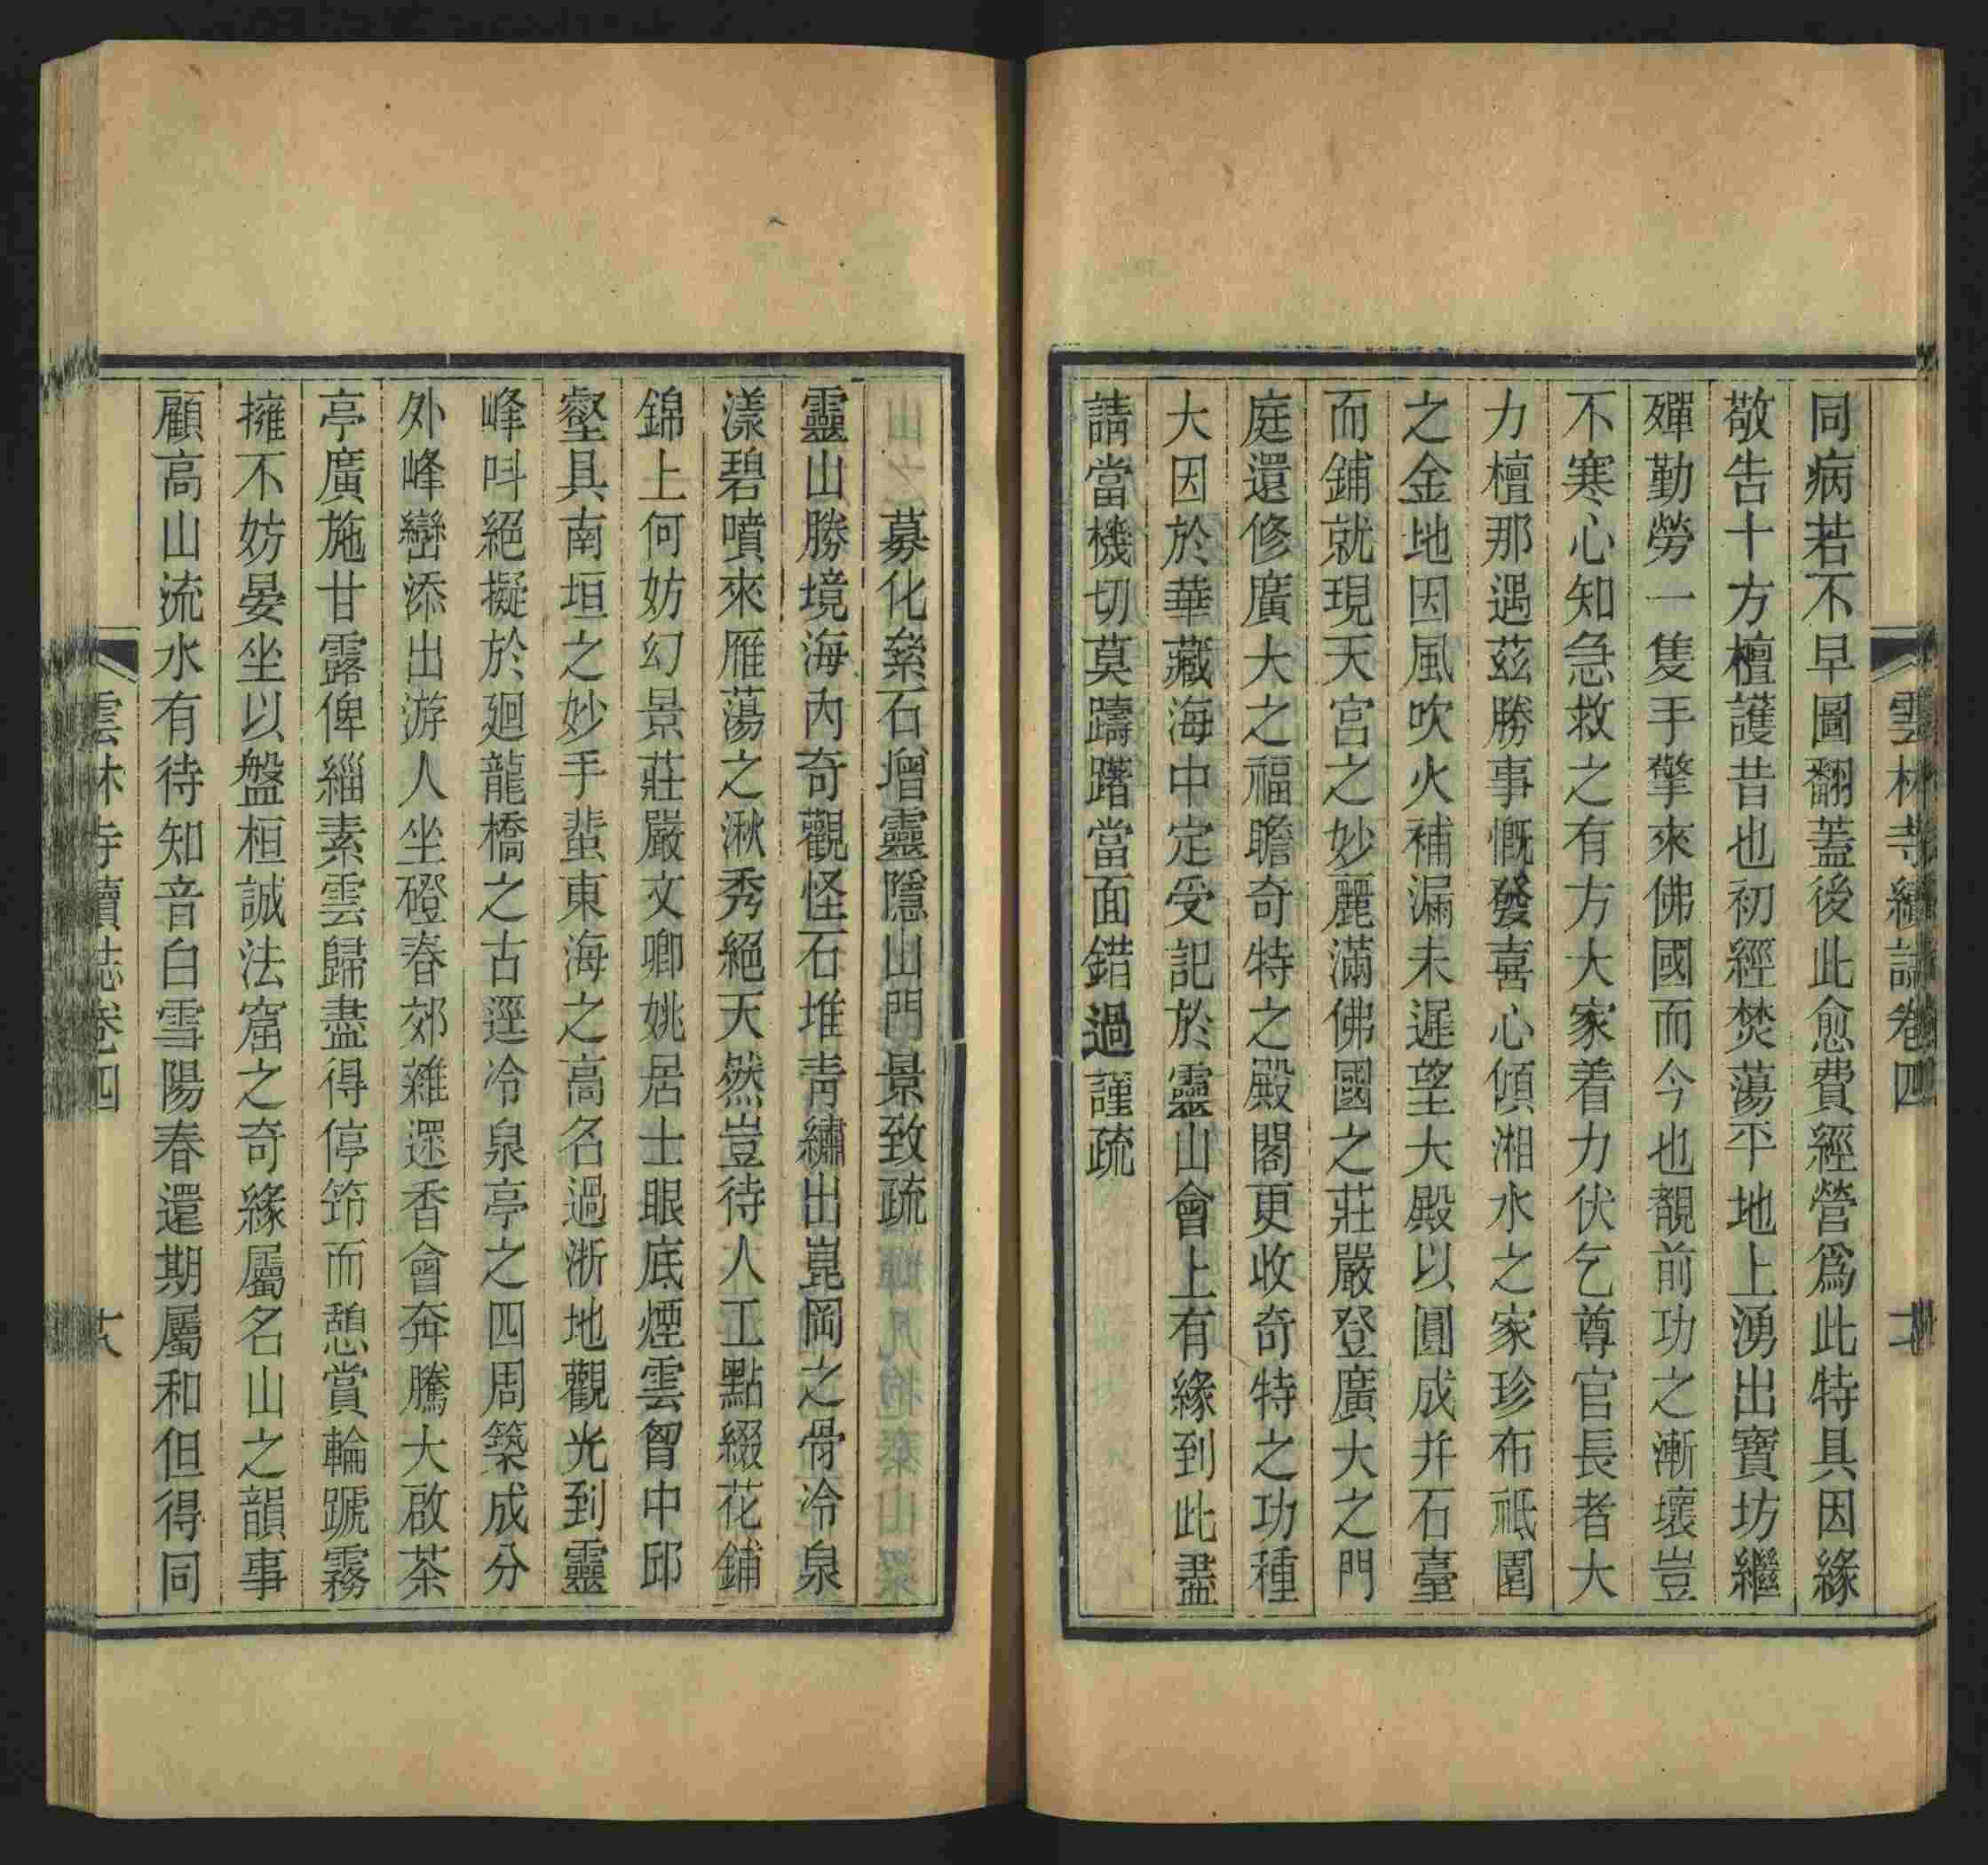 雲林寺續誌卷四
同病若不早圖翻蓋後此愈費經營爲此特具因緣
敬告十方檀護昔也初經焚蕩平地上湧出寶坊繼
殫勤勞一隻手擎來佛國而今也覩前功之漸壞豈
不寒心知急救之有方大家着力伏乞尊官長者大
力檀那遇茲勝事慨發喜心傾湘水之家珍布祗園
之金地因風吹火補漏未遲望大殿以圓成并石臺
而鋪就現天宮之妙麗滿佛國之莊嚴登廣大之門
庭還修廣大之福瞻奇特之殿閣更收奇特之功種
大因於華藏海中定受記於靈山會上有緣到此盡
請當機切莫躊躇當面錯過謹疏
募化絫石增靈隱山門景致疏
靈山勝境海內奇觀怪石堆靑繡出崑岡之骨冷泉
漾碧噴來雁蕩之湫秀絕天然豈待人工點綴花鋪
錦上何妨幻景莊嚴文卿姚居士眼底煙雲胷中邱
壑具南垣之妙手蜚東海之高名過浙地觀光到靈
峰呌絕擬於廻龍橋之古逕冷泉亭之四周築成分
外峰巒添出游人坐磴春郊雜遝香會奔騰大啟茶
亭廣施甘露俾緇素雲歸盡得停筇而憩賞輪蹏霧
擁不妨晏坐以盤桓誠法窟之奇緣屬名山之韻事
顧高山流水有待知音白雪陽春還期屬和但得同
雲林寺續誌卷四
十八